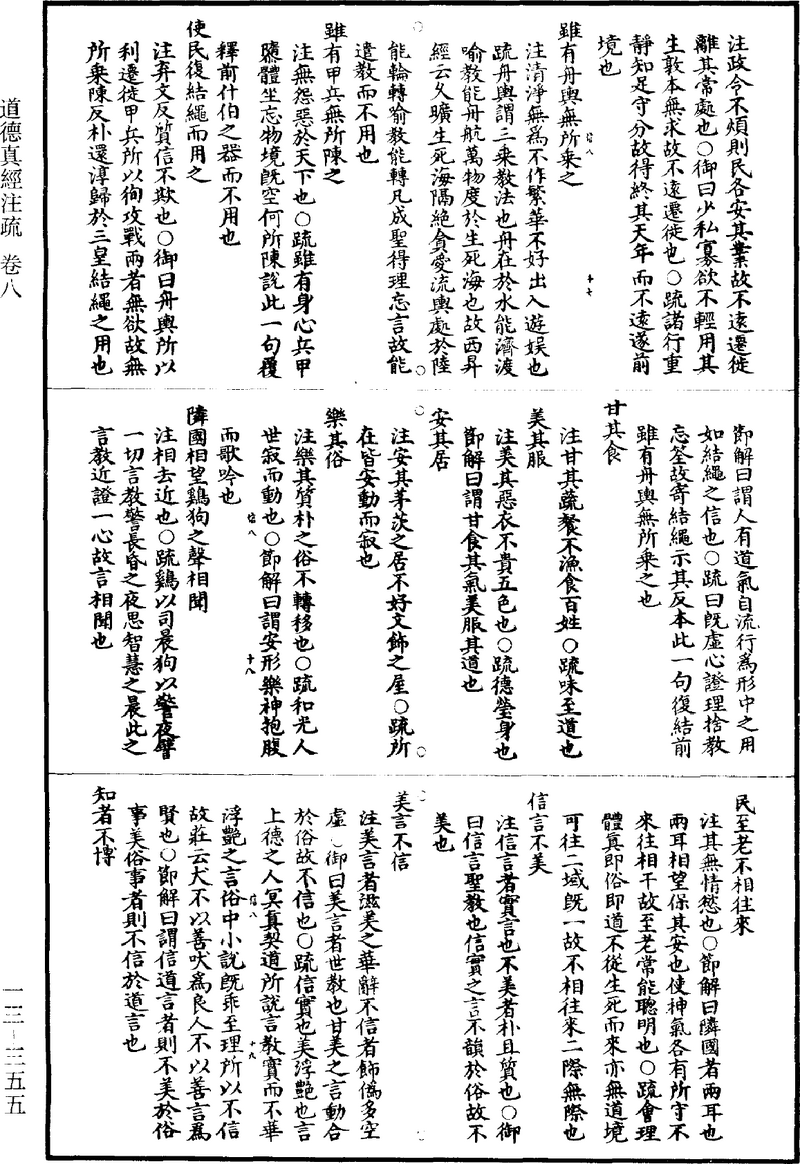 注政令不煩則民各安其業故不遠遷徙
離其常處也○御曰少私寡欲不輕用其
生敦本無求故不遠遷徙也○疏諸行重
靜知足守分故得終其天年而不遠遂前
境也
雖有舟輿無所乘之
注清淨無為不作繁華不好出入遊娛也
疏舟輿謂三乘教法也舟在於水能濟渡
喻教能舟航萬物度於生死海也故西昇
經云久曠生死海隔絶貪愛流輿處於陸
能輪轉喻教能轉凡成聖得理忘言故能
遣教而不用也
雖有甲兵無所陳之
注無怨惡於天下也○疏雖有身心兵甲
隳體坐忘物境既空何所陳說此一句覆
釋前什伯之器而不用也
使民復結繩而用之
注弃文反質信不欺也○御曰舟輿所以
利遷徙甲兵所以徇攻戰兩者無欲故無
所乘陳反朴還淳歸於三皇結繩之用也
節解曰謂人有道氣自流行為形中之用
如結繩之信也○疏曰既虛心證理捨教
忘筌故寄結繩示其反本此一句復結前
雖有舟輿無所乘之也
甘其食
注甘其蔬飧不漁食百姓○疏味至道也
美其服
注美其惡衣不貴五色也○疏德瑩身也
節解曰謂甘食其氣美服其道也
安其居
注安其茅茨之居不好文飾之屋○疏所
在皆安動而寂也
樂其俗
注樂其質朴之俗不轉移也○疏和光人
世寂而動也○節解曰謂安形樂神抱腹
而歌吟也
隣國相望鷄狗之聲相聞
注相去近也○疏鷄以司晨狗以警夜譬
一切言教警長昏之夜思智慧之晨此之
言教近證一心故言相聞也
民至老不相往來
注其無情慾也○節解曰隣國者兩耳也
兩耳相望保其安也使神氣各有所守不
來往相干故至老常能聰明也○疏會理
體真即俗即道不從生死而來亦無道境
可往二域既一故不相往來二際無際也
信言不美
注信言者實言也不美者朴且質也○御
曰信言聖教也信實之言不韻於俗故不
美也
美言不信
注美言者滋美之華辭不信者飾僞多空
虛○御曰美言者世教也甘美之言動合
於俗故不信也○疏信實也美浮艷也言
上德之人冥真契道所說言教實而不華
浮艷之言俗中小說既乖至理所以不信
故莊云犬不以善吠為良人不以善言為
賢也○節解曰謂信道言者則不美於俗
事美俗事者則不信於道言也
知者不博
道德真經注疏 卷八
一三-三五五